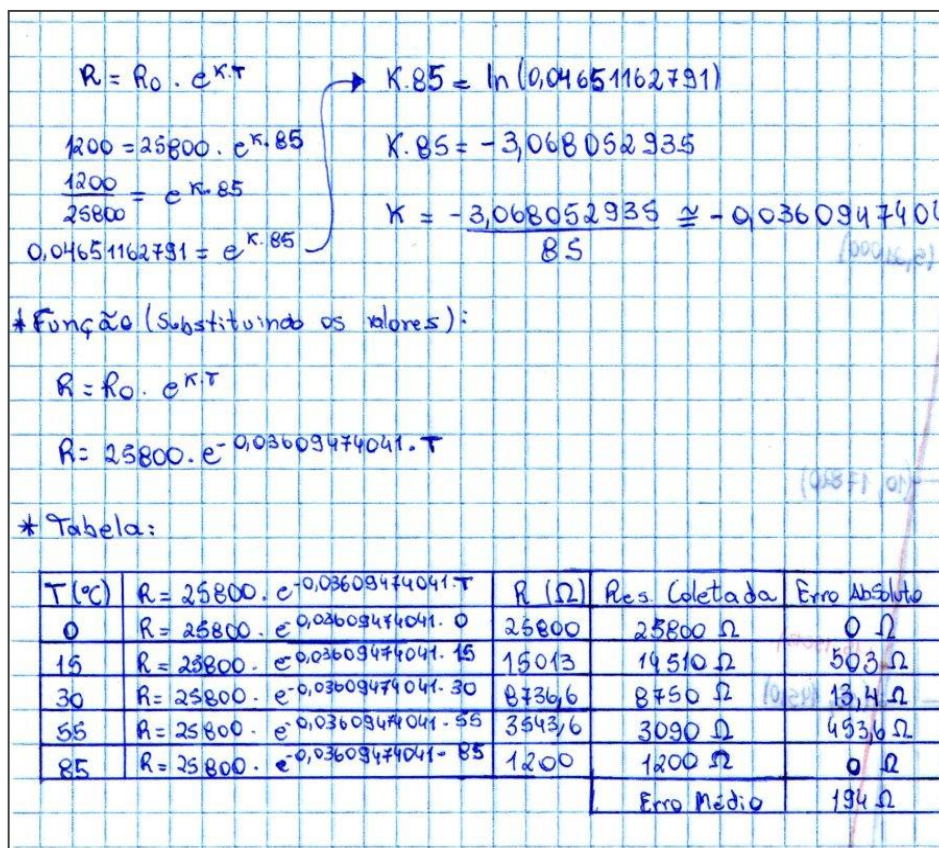 R = R0 . e^K.T
1200 = 25800 . e^K.85
1200/25800 = e^K.85
0,04651162791 = e^K.85
K.85 = ln(0,04651162791)
K.85 = -3,068052935
K = -3,068052935/85 ≅ -0,0360947404
* Função (Substituindo os valores):
R = R0 . e^K.T
R = 25800 . e^-0,03609474041.T
* Tabela:
T(°C) R = 25800 . e^-0,03609474041.T R (Ω) Res. Coletada Erro Absoluto
0 R = 25800 . e^-0,03609474041.0 25800 25800 Ω 0 Ω
15 R = 25800 . e^-0,03609474041.15 15013 14510 Ω 503 Ω
30 R = 25800 . e^-0,03609474041.30 8736,6 8750 Ω 13,4 Ω
55 R = 25800 . e^-0,03609474041.55 3543,6 3090 Ω 453,6 Ω
85 R = 25800 . e^-0,03609474041.85 1200 1200 Ω 0 Ω
Erro Médio 194 Ω